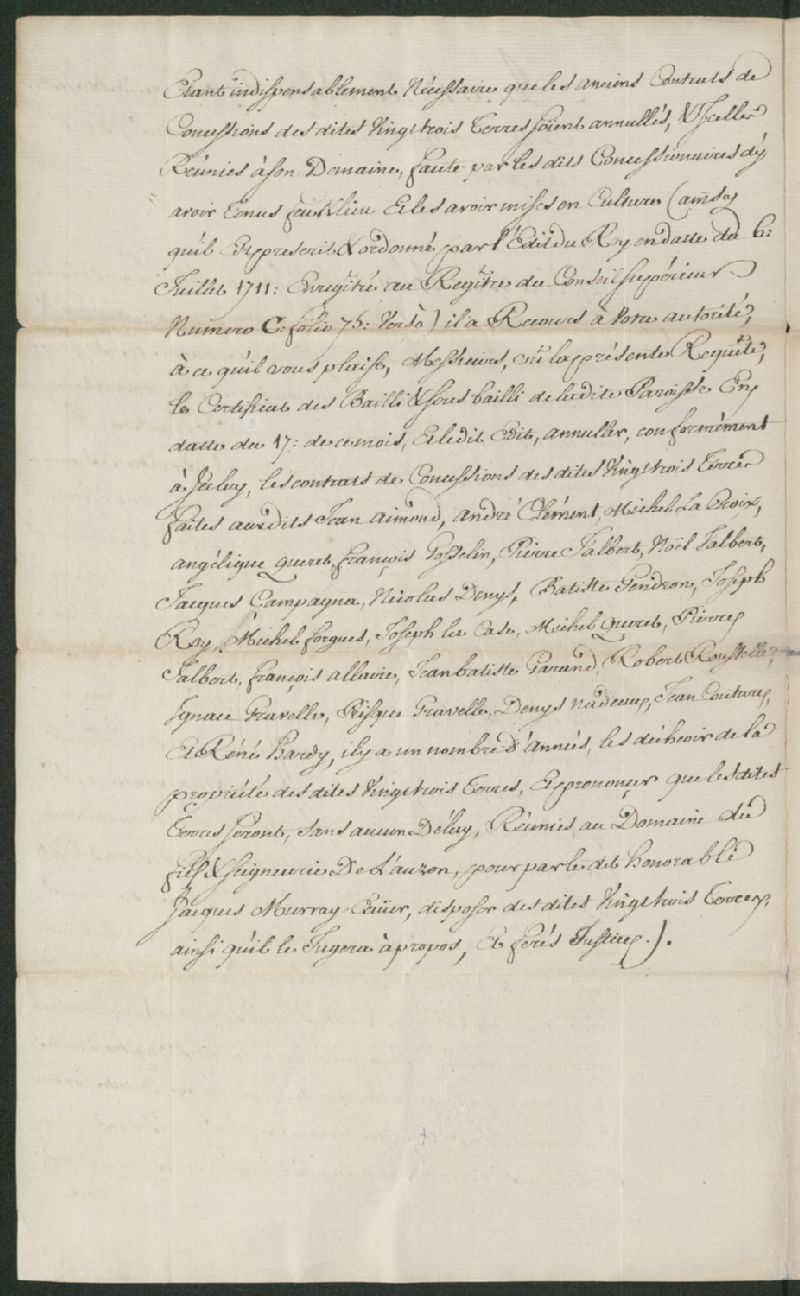 Etant indispensablement Nécessaire que les anciens Contrats de
Concessions des dites Vingt trois Terres soient annullés, & Icelles
Réünies à son Domaine, faute par les dits Concessionaires d'y
avoir Tenus feu & lieu Et les avoir mises en Culture (ainsy
qu'il Est prescrit & ordonné par l'Edit du Roy en datte du 6:
Juillet 1711: Enregîtré au Regîtres du Conseil supérieur
Numero C. folio 75: Verso) il a Recours à Votre autorité,
à ce qu'il vous plaise, Messieurs, vû la présente Requête,
le Certificat des Bailli & sous bailli de la dite Paroisse En
datte du 17: de ce mois, Et le dit Edit, annuller, conformément
à Iceluy, les contrats de Concessions des dites Vingt trois Terres
faites aux dits Jean aimond, andré Clément, Michel La Croix,
angélique queret, françois Gosselin, Pierre Jalbert, Noël Jalbert,
Jacques Campagna, Nicolas Denys, Batiste Gendron, Joseph
Roy, Michel forgues, Joseph la Case, Michel queret, Pierre
Jalbert, françois allaire, Jean batiste Parand, Robert Rousselle,
Ignace Gravelle, Prisque Gravelle, Denys nadeau, Jean Couture,
Et Réné hardy, il y a un nombre d'annés, les décheoir de la
propriété des dites Vingt trois Terres, Et prononcer que les dites
Terres seront, sans aucun Délay, Réünies au Domaine du
fief & seigneurie De Lauzon, pour par le dit honorable
Jacques Murray Ecuïer, disposer des dites Vingt trois Terres,
ainsi qu'il le Jugera à propos, Et ferés Justice.).